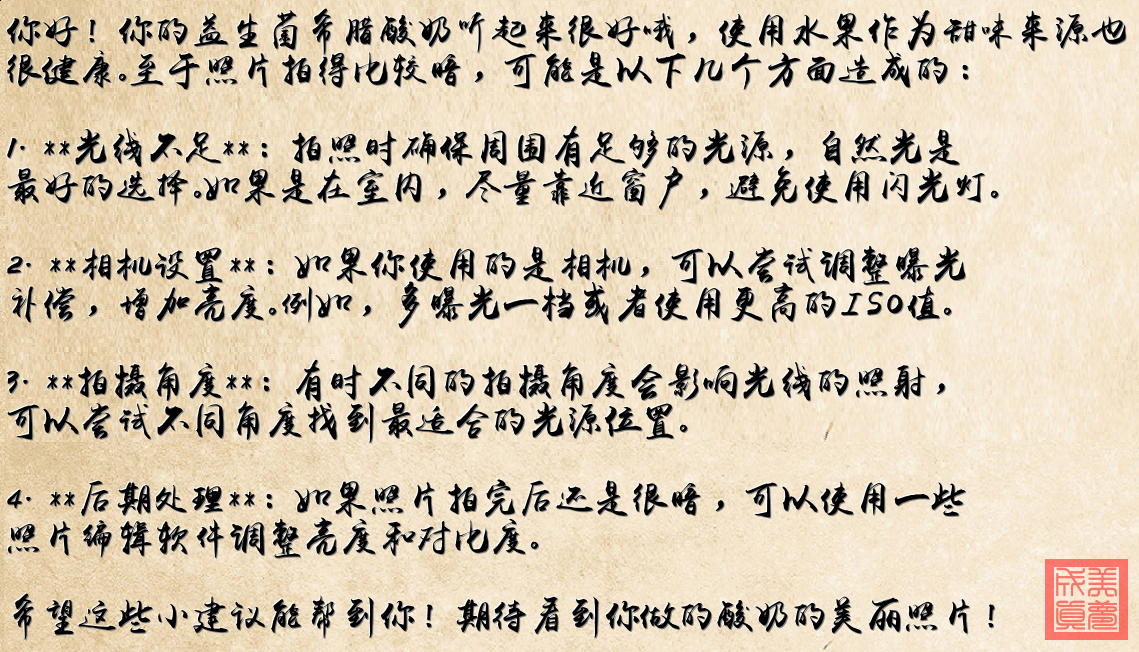 你好！你的益生菌希腊酸奶听起来很好哦，使用水果作为甜味来源也
很健康。至于照片拍得比较暗，可能是以下几个方面造成的：
1. **光线不足**：拍照时确保周围有足够的光源，自然光是
最好的选择。如果是在室内，尽量靠近窗户，避免使用闪光灯。
2. **相机设置**：如果你使用的是相机，可以尝试调整曝光
补偿，增加亮度。例如，多曝光一档或者使用更高的ISO值。
3. **拍摄角度**：有时不同的拍摄角度会影响光线的照射，
可以尝试不同角度找到最适合的光源位置。
4. **后期处理**：如果照片拍完后还是很暗，可以使用一些
照片编辑软件调整亮度和对比度。
希望这些小建议能帮到你！期待看到你做的酸奶的美丽照片！
美梦
成真